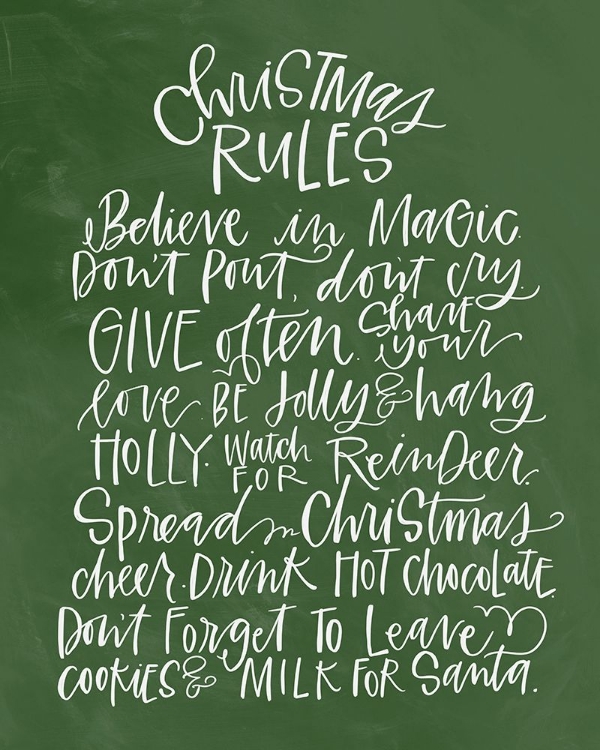 ChriSTMas
RULES
Believe in MaGic.
Don't Pout, don't cry.
GIVE often. Share your
love. BE Jolly & hang
HOLLY. Watch FOR ReinDeer.
Spread ChriStmas
cheer. Drink HOT chocolate.
Don't Forget To Leave
cookies & MILK FOR Santa.